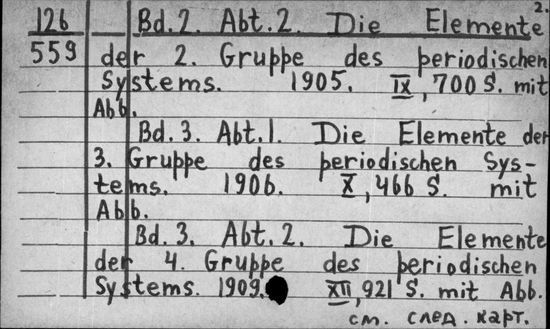 2.
126 Bd. 2. Abt. 2. Die Elemente
559 der 2. Gruppe des periodischen
Systems. 1905. IX, 700 S. mit
Abb.
Bd. 3. Abt. 1. Die Elemente der
3. Gruppe des periodischen Sys-
tems. 1906. X, 466 S. mit
Abb.
Bd. 3. Abt. 2. Die Elemente
der 4. Gruppe des periodischen
Systems. 1909. XII, 921 S. mit Abb.
см. след. карт.